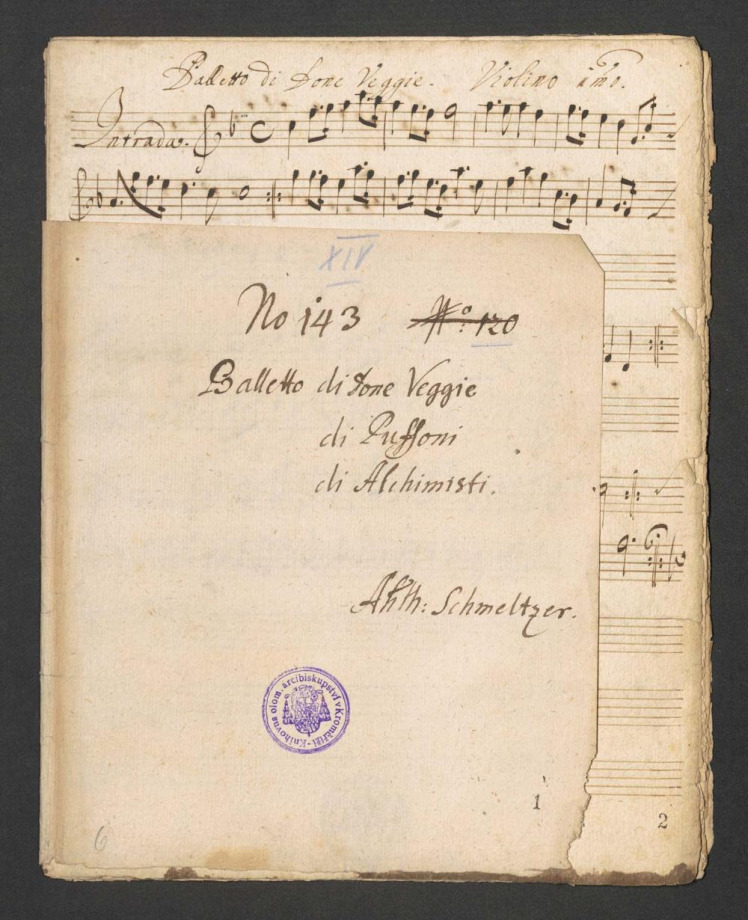 Balletto di Done Veggie. Violino imo.
Intrada.
XIV
No 143 No: 120
Balletto di Done Veggie
di Puffoni
di Alchimisti.
Anth: Schmeltzer.
Knihovna olom. arcibiskupství v Kroměříži
1
2
6